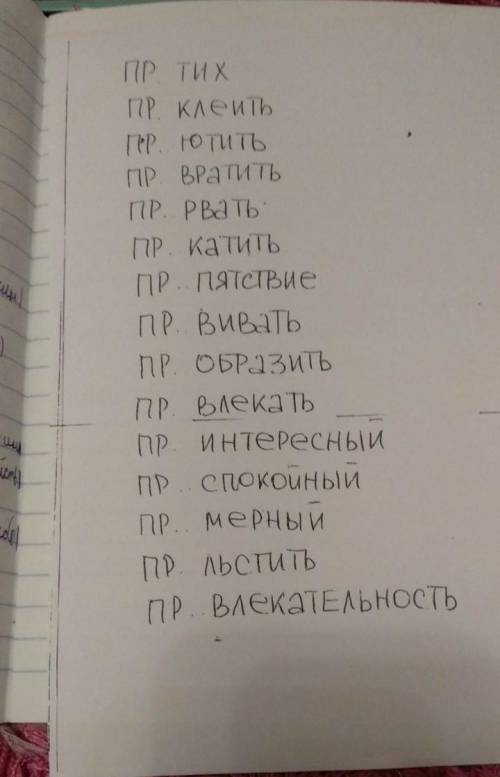 ПР. ТИХ
ПР. КЛЕИТЬ
ПР. ЮТИТЬ
ПР. ВРАТИТЬ
ПР. РВАТЬ
ПР. КАТИТЬ
ПР. ПЯТСТВИЕ
ПР. ВИВАТЬ
ПР. ОБРАЗИТЬ
ПР. ВЛЕКАТЬ
ПР. ИНТЕРЕСНЫЙ
ПР.. СПОКОЙНЫЙ
ПР.. МЕРНЫЙ
ПР. ЛЬСТИТЬ
ПР.. ВЛЕКАТЕЛЬНОСТЬ